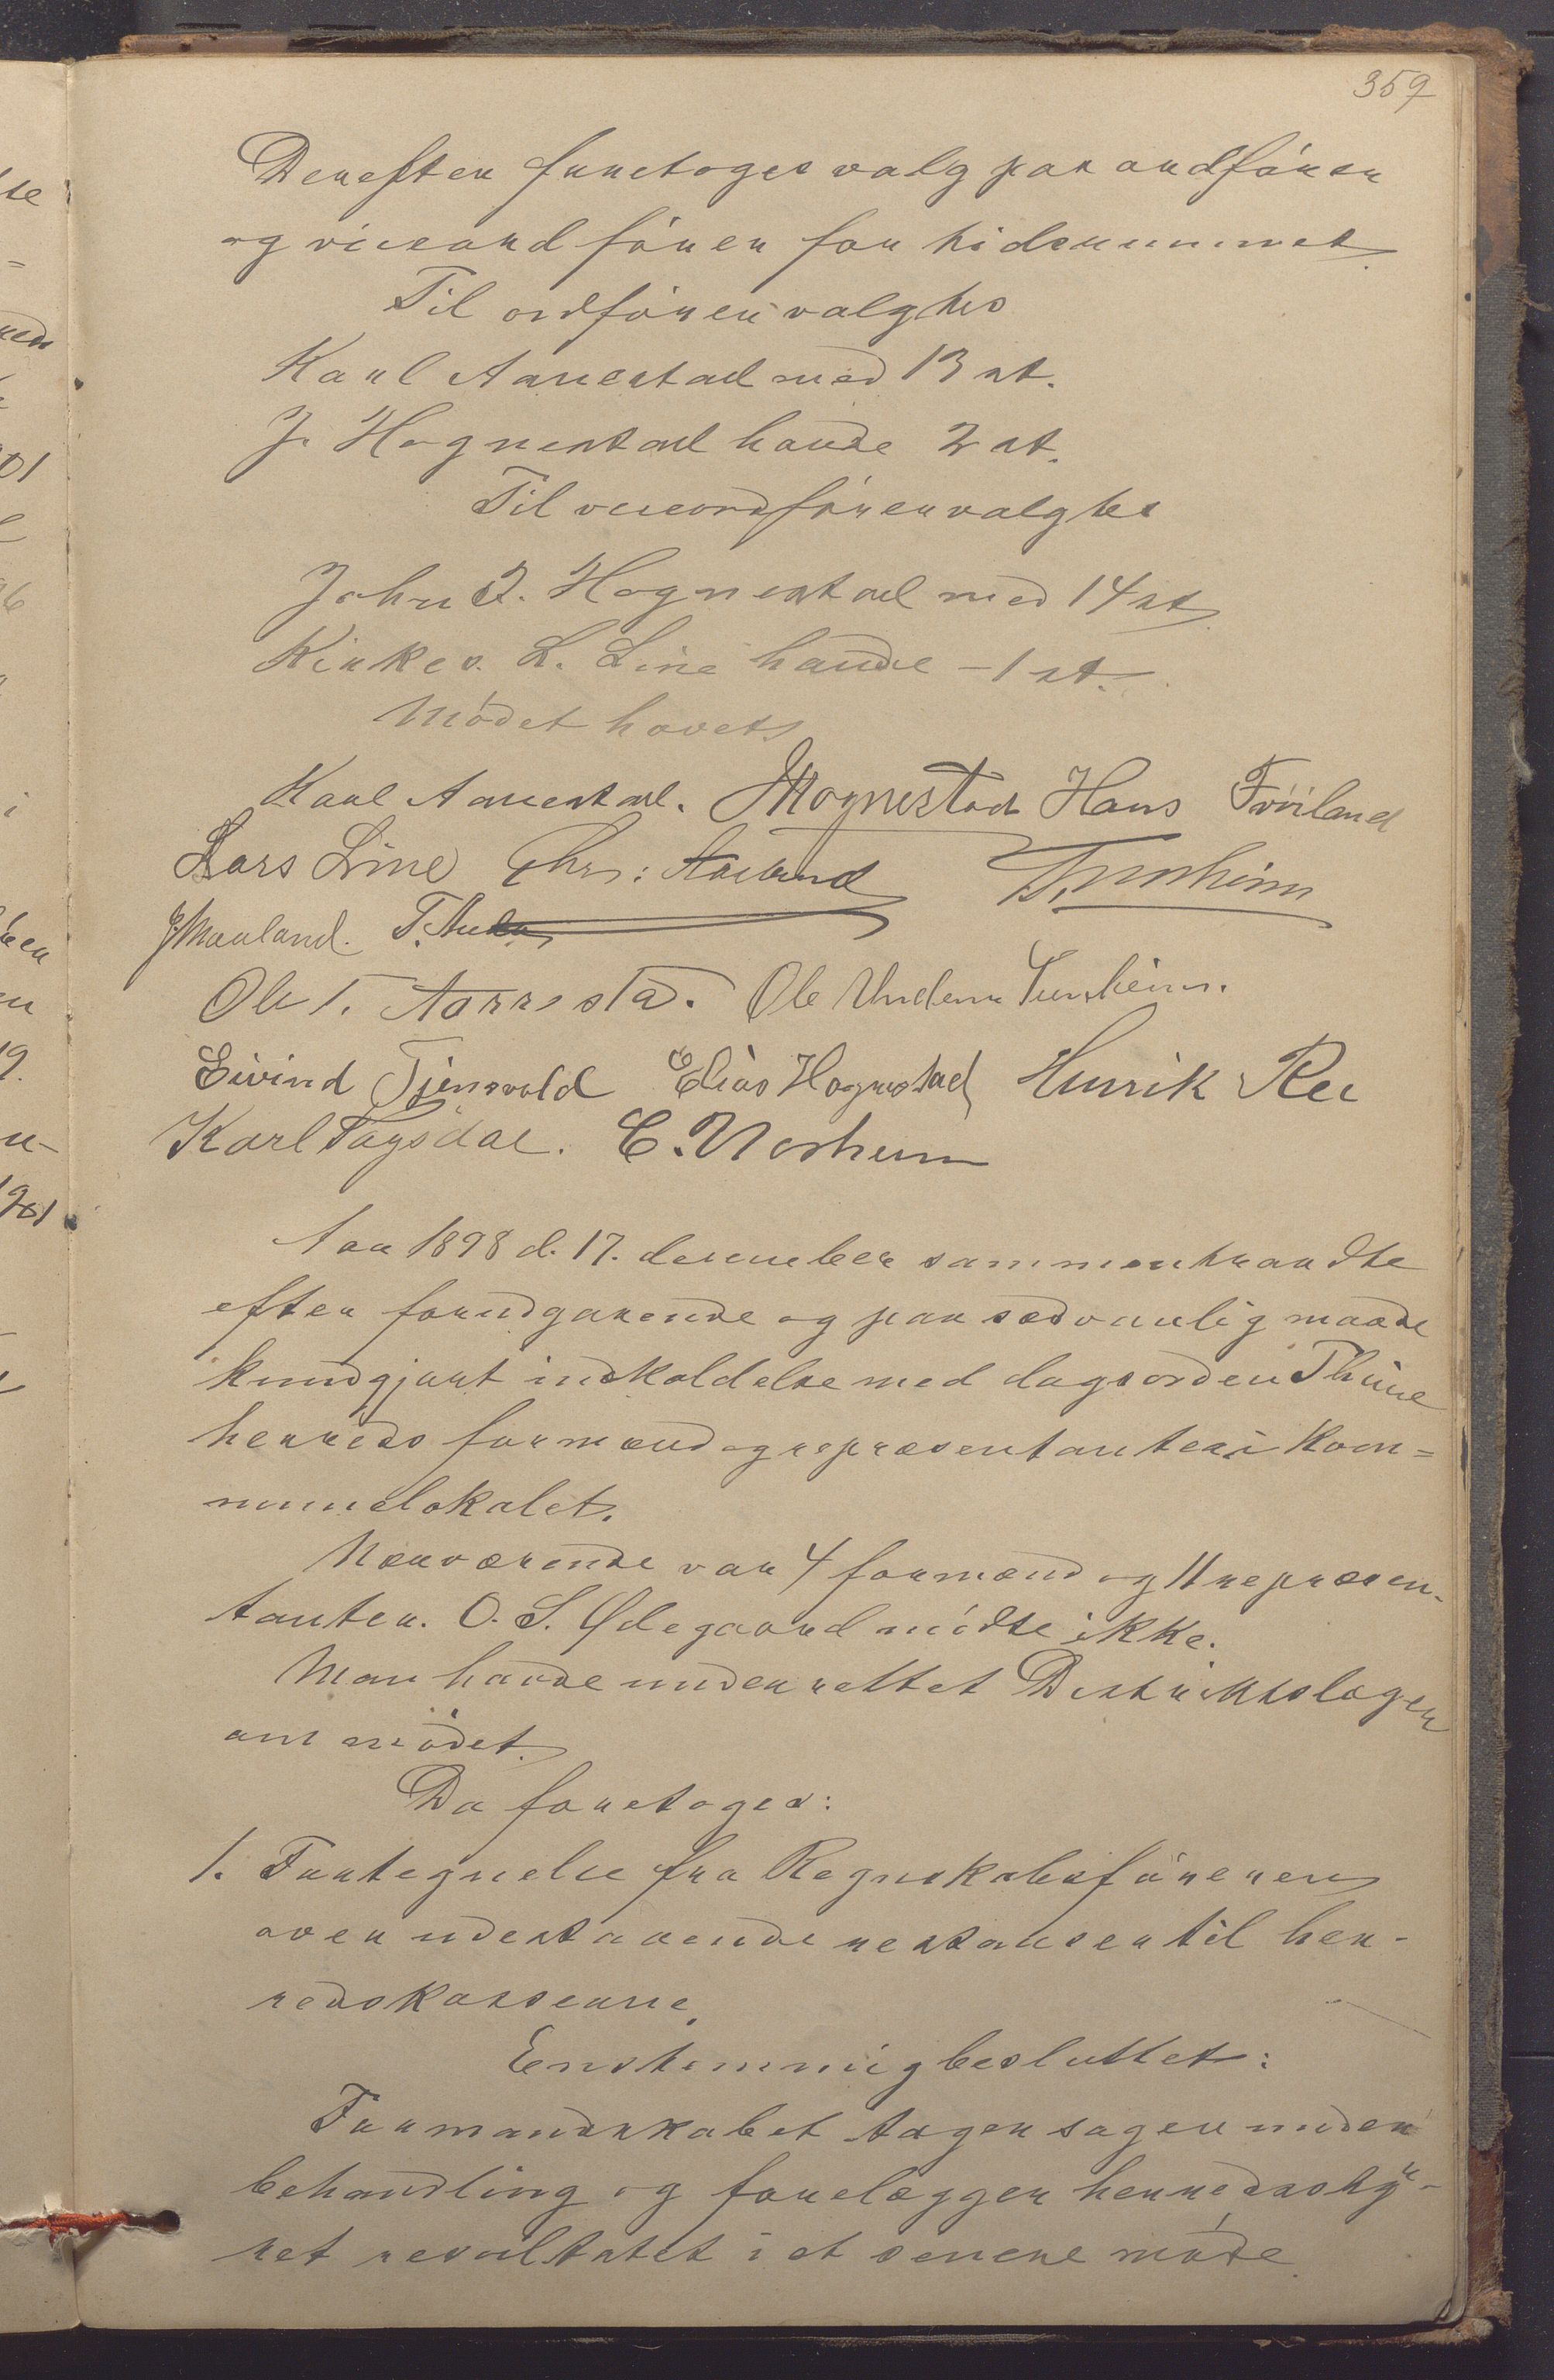 359
Derefter foretoges valg paa ordförer
og viceordförer for tidsrummet.
Til ordförer valgtes
Karl Aarrestad med 13 st.
J. Hognestad havde 2 st.
Til viceordförer valgtes
John J. Hognestad med 14 st.
Kirkes. L. Line havde – 1 st.
Mödet hævet.
Karl Aarrestad. JHognestad Hans Fröiland
Lars Line Chr: Aarland Tunheim
Maaland. T.
Ole T. Aarrestad. Ole Undem Tunheim.
Eivind Tjensvold Elias Hognestad Henrik Ree
Karl Tægsdal. C. Norheim
Aar 1898 d. 17. december sammentraadte
efter forudgaaende og paa sædvanlig maade
kundgjort indkaldelse med dagsorden Thime
herreds formænd og repræsentanter i Kom=
munelokalet.
Nærværende var 4 formænd og 11 repræsen-
tanter. O. S. Ødegaard mödte ikke.
Man havde underrettet Distriktslægen
om mödet.
Da foretoges:
1. Fortegnelse fra Regnskabsföreren
over udestaaende restanser til her-
redskasserne.
Enstemmig besluttet:
Formandskabet tager sagen under
behandling og forelægger herredssty-
ret resultatet i et senere möde.